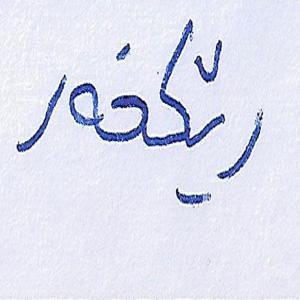 ڕێکخەر